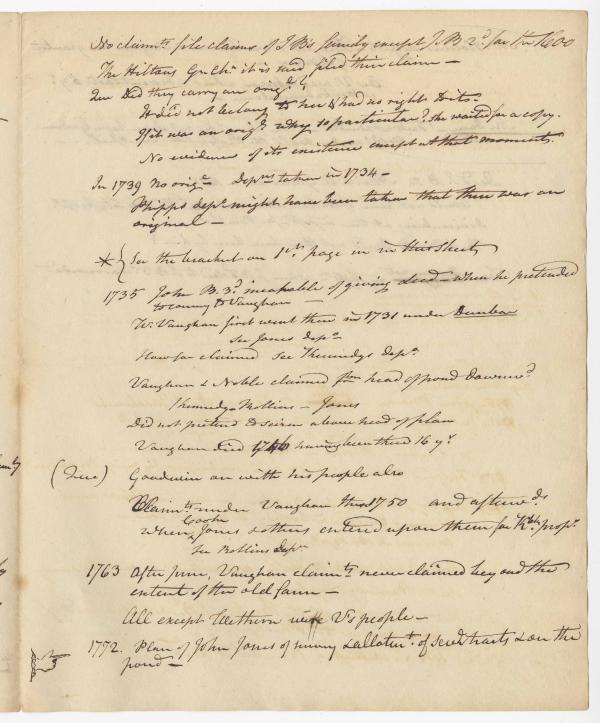 No claimts file claims of J B's family except J. B 2d. for the 1600
The Hiltons Gr. Chn it is said filed their claim —
Que Did they carry an origl?
It did not belong to her & had no rights to it.
If it was an origl. why so particular? she waited for a copy.
No evidence of its existence except at that moment.
In 1739 No origl — Depns taken in 1734 —
Phipps depn might have been taken that there was an
original —
* { See the bracket on 1st page in in this sheet
1735 John B. 3d. incapable of giving deed — when he pretended
to convey to Vaughan —
Wm Vaughan first went there in 1731 under Dunbar
See Jones Depn
How far claimed See Kennedys Depn
Vaughan & Noble claimed from head of pond downwd
Kennedy Rollins — Jones
Did not pretend to seizen above head of plan
Vaughan died 1746 having been there 16 yr
(Que) Goodwin on with his people also
Claimts under Vaughan thro 1750 and afterwds
Cooper
when Jones & others entered upon them for Kbk propr.
See Rollins depn
1763 After June, Vaughan claimts never claimed beyond the
extent of the old farm —
All except were V's people —
1772. Plan of John Jones of survey & allotmt. of sevl tracts & on the
pond —